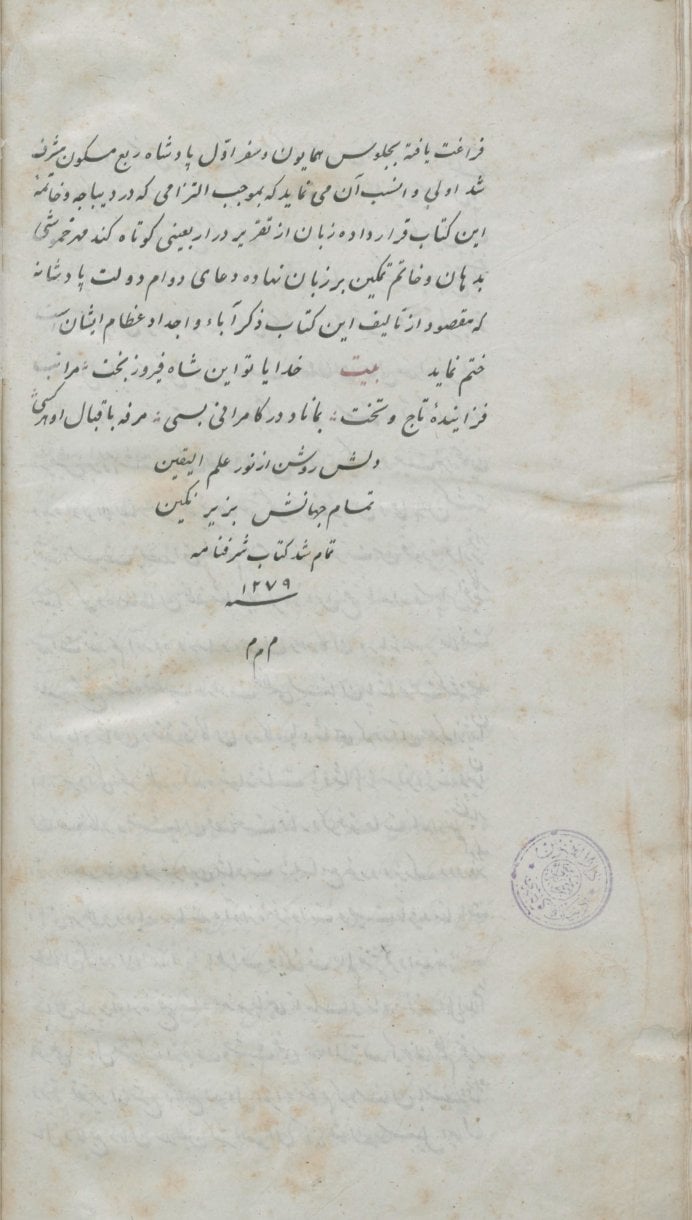 فراغت یافته بجلوس همایون و سفر اوّل پادشاه ربع مسکون مشرف
شد اولی و انسب آن می نماید که بموجب التزامی که در دیباجه و خاتمه
این کتاب قرار داده زبان از تقریر در اربعینی کوتاه کند مهر خموشی
بدهان و خاتم تمکین بر زبان نهاده دعای دوام دولت پادشانه
که مقصود از تالیف این کتاب ذکر آباء و اجداد عظام ایشان است
ختم نماید بیت خدایا تو این شاه فیروز بخت
فزایندهٔ تاج و تخت بمانا در کامرانی بسی مرفه باقبال او هر کسی
دلش روشن از نور علم الیقین
تمام جهانش بزیر نکین
تمام شد کتاب شرفنامه
۱۲۷۹
م م م